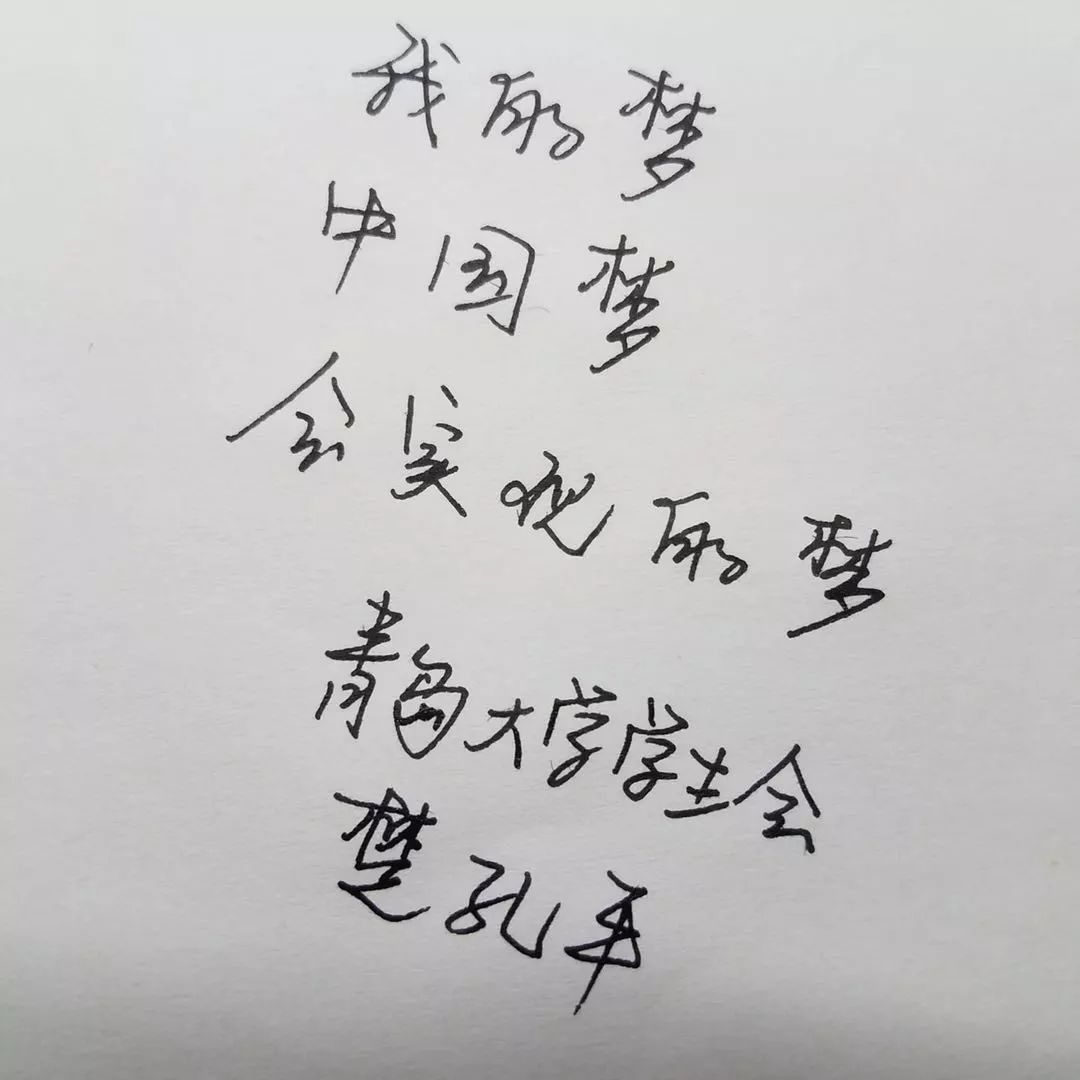 我的梦
中国梦
会实现的梦
青岛大学学生会
楚孔